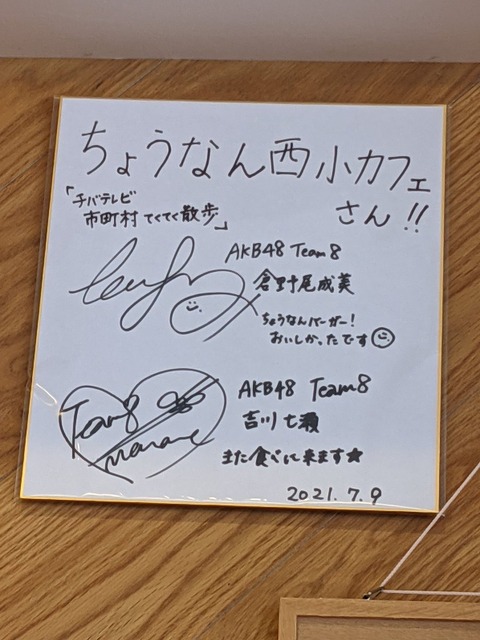 ちょうなん西小カフェ
さん!!
「チバテレビ
市町村てくてく散歩」
AKB48 Team8
倉野尾成美
ちょうなんバーガー!
おいしかったです
Team8
nanase
AKB48 Team8
吉川七瀬
また食べに来ます☆
2021.7.9